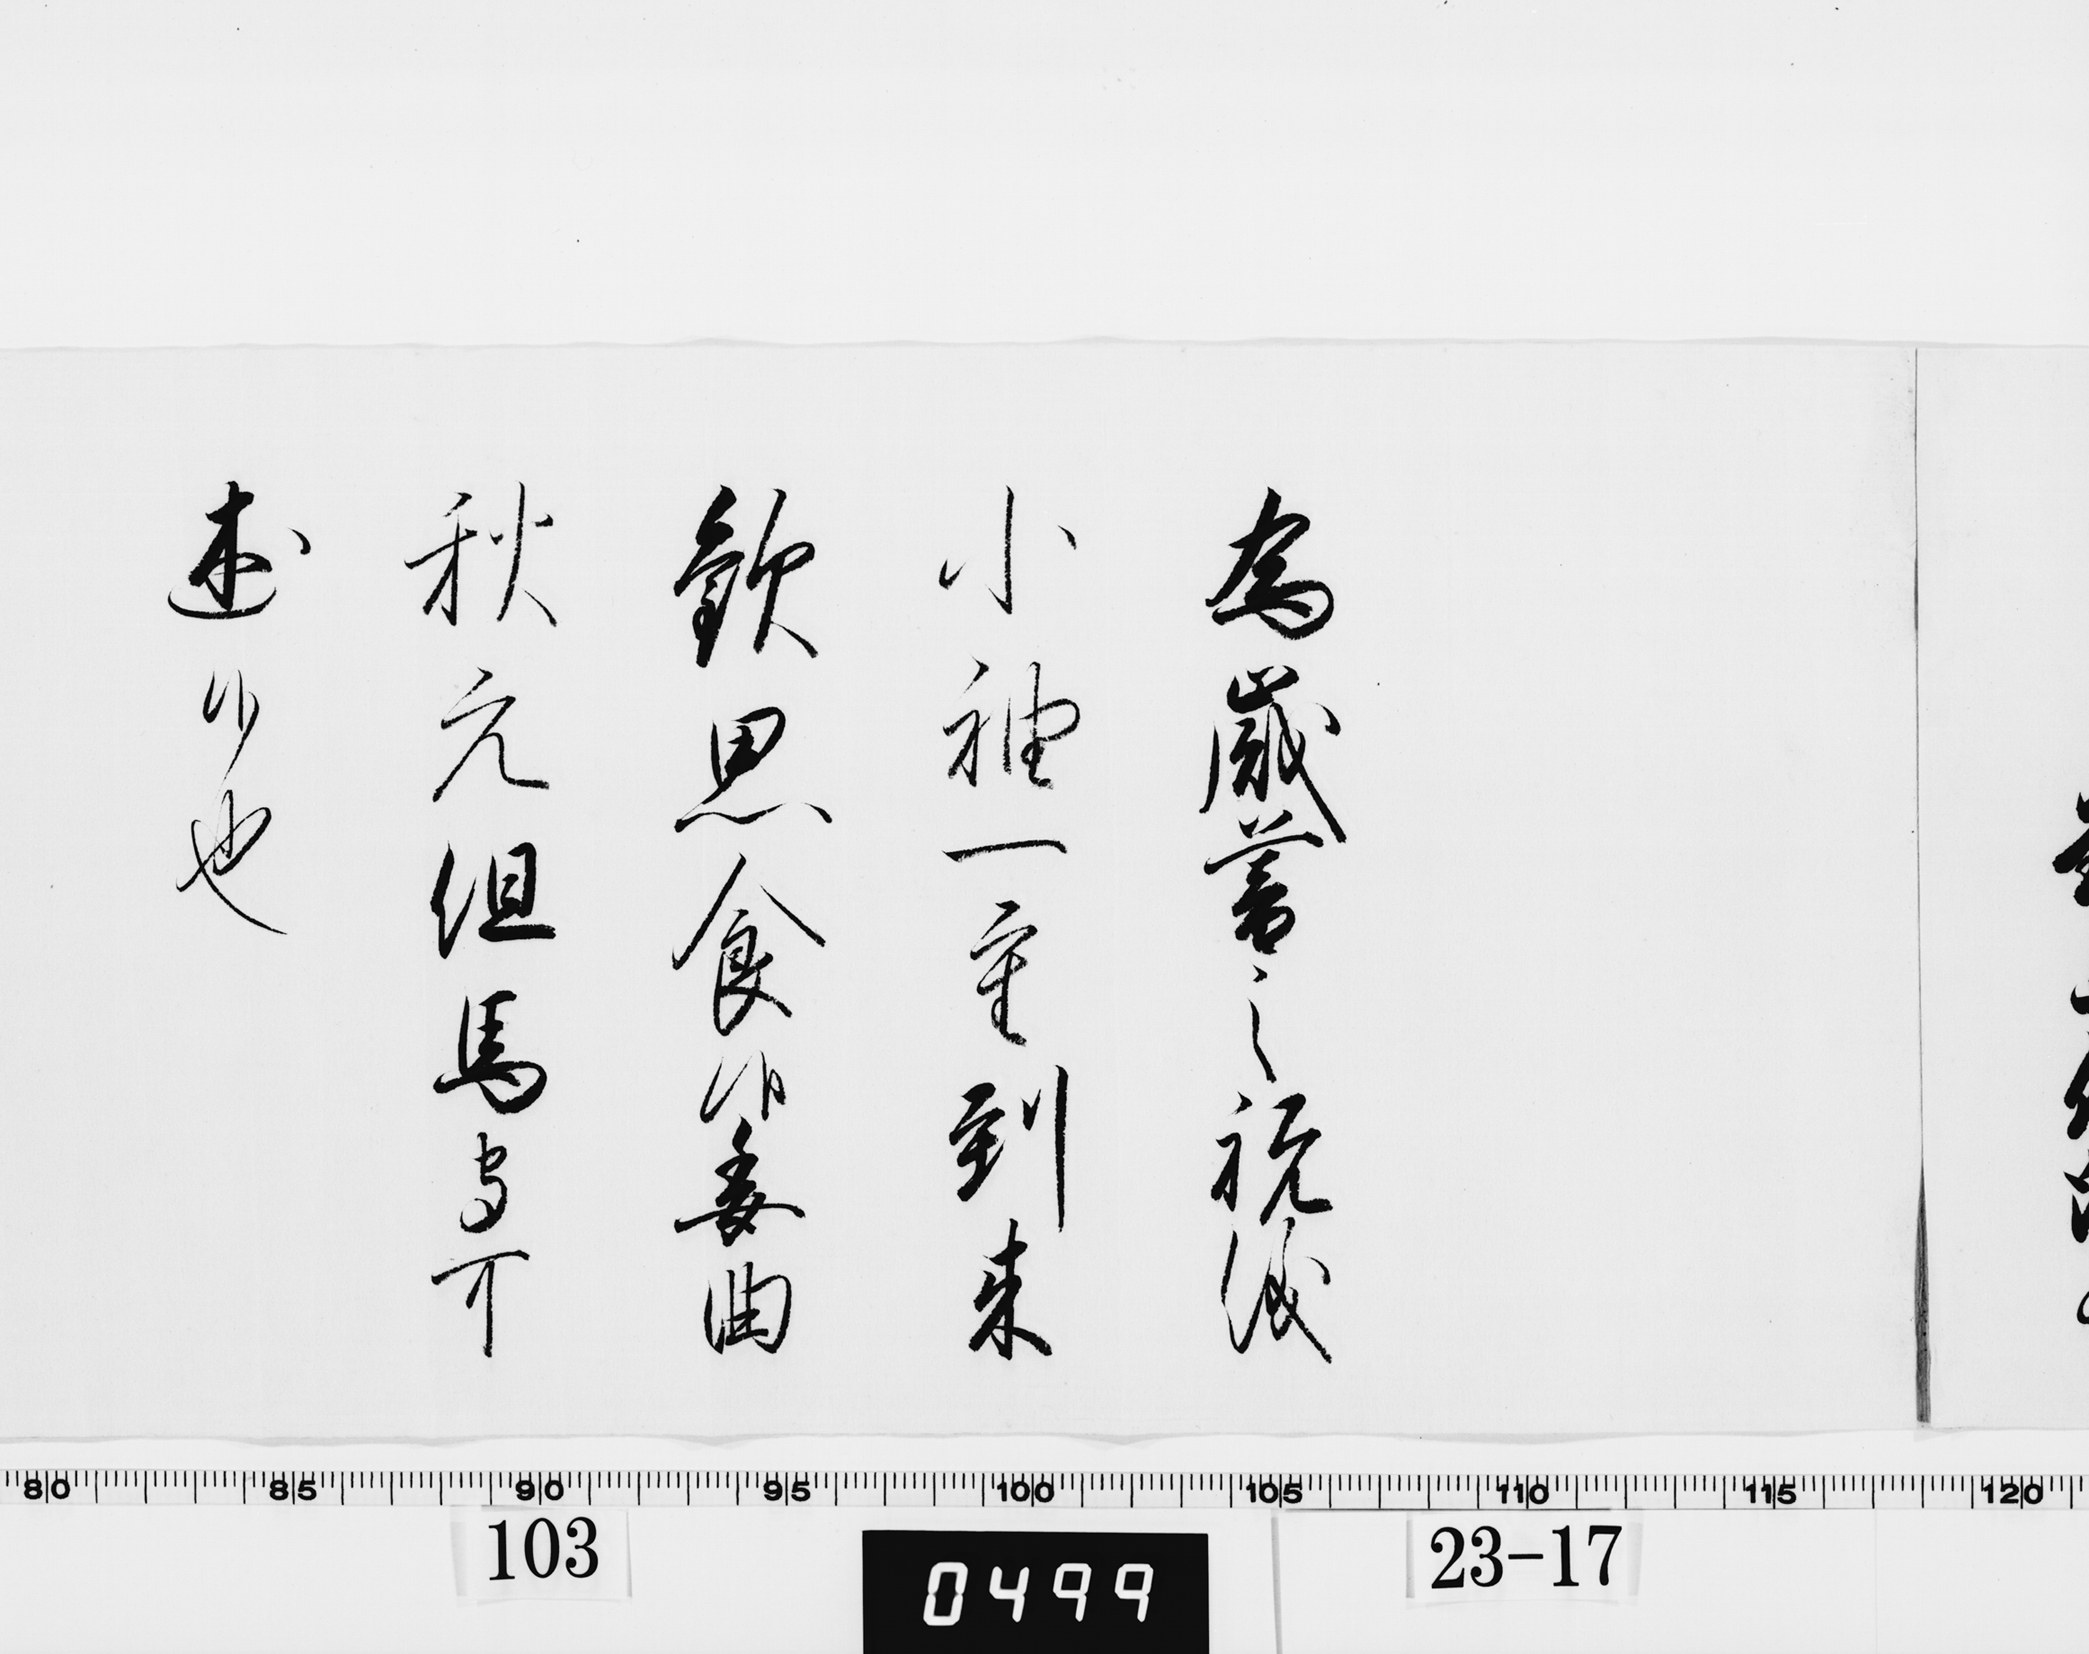 為歳暮之祝儀
小袖一重到来
歓思食候委曲
秋元但馬守可
述候也
80 85 90 95 100 105 110 115 120
103
0499
23-17